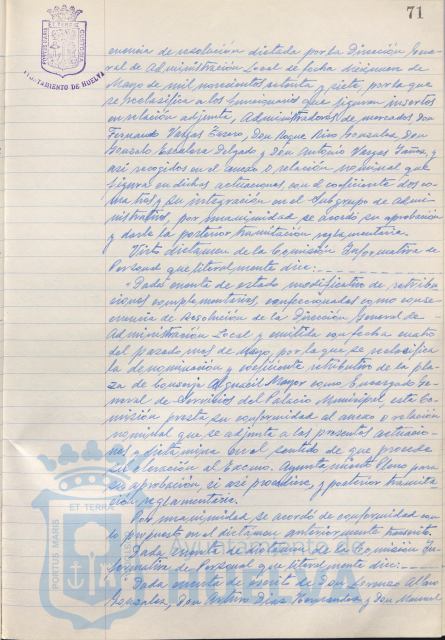 71
AYUNTAMIENTO DE HUELVA
cuencia de resolución dictada por la Dirección Gene-
ral de Administración Local de fecha diez de
Mayo de mil novecientos setenta y siete, por la que
se reclasifica a los funcionarios que figuran insertos
en relación adjunta, Administradores de mercados Don
Fernando Vargas Don Roque Rivo González, Don
Gonzalo Escalera Delgado y Don Antonio Vargas Yañez, y
así recogidos en el anexo o relación nominal que
figura en dichas actuaciones con el coeficiente dos co-
ma tres y su integración en el Subgrupo de Admi-
nistrativos, por unanimidad se acordó su aprobación
y darle la posterior tramitación reglamentaria.
Visto dictamen de la Comisión Informativa de
Personal que literalmente dice:
Dada cuenta de estado modificativo de retribu-
ciones complementarias, confeccionadas como conse-
cuencia de Resolución de la Dirección General de
Administración Local y emitida con fecha cuatro
del pasado mes de Mayo, por la que se reclasifica
la denominación y coeficiente retributivo de la pla-
za de Conserje Alguacil Mayor como Encargado Ge-
neral de Servicios del Palacio Municipal esta Co-
misión presta su conformidad al anexo o relación
nominal que se adjunta a las presentes actuacio-
nes y dictamina en el sentido de que procede
su elevación al Excmo. Ayuntamiento Pleno para
su aprobación, si así procediere, y posterior tramita-
ción reglamentaria.
Por unanimidad se acordó de conformidad con
lo propuesto en el dictamen anteriormente transcrito.
Dada cuenta de dictamen de la Comisión In-
formativa de Personal que literalmente dice:
Dada cuenta de escrito de Don Lorenzo Alfaro
González, Don Arturo Díaz Hernández y Don Manuel
PORTUS MARIS ET TERRAE